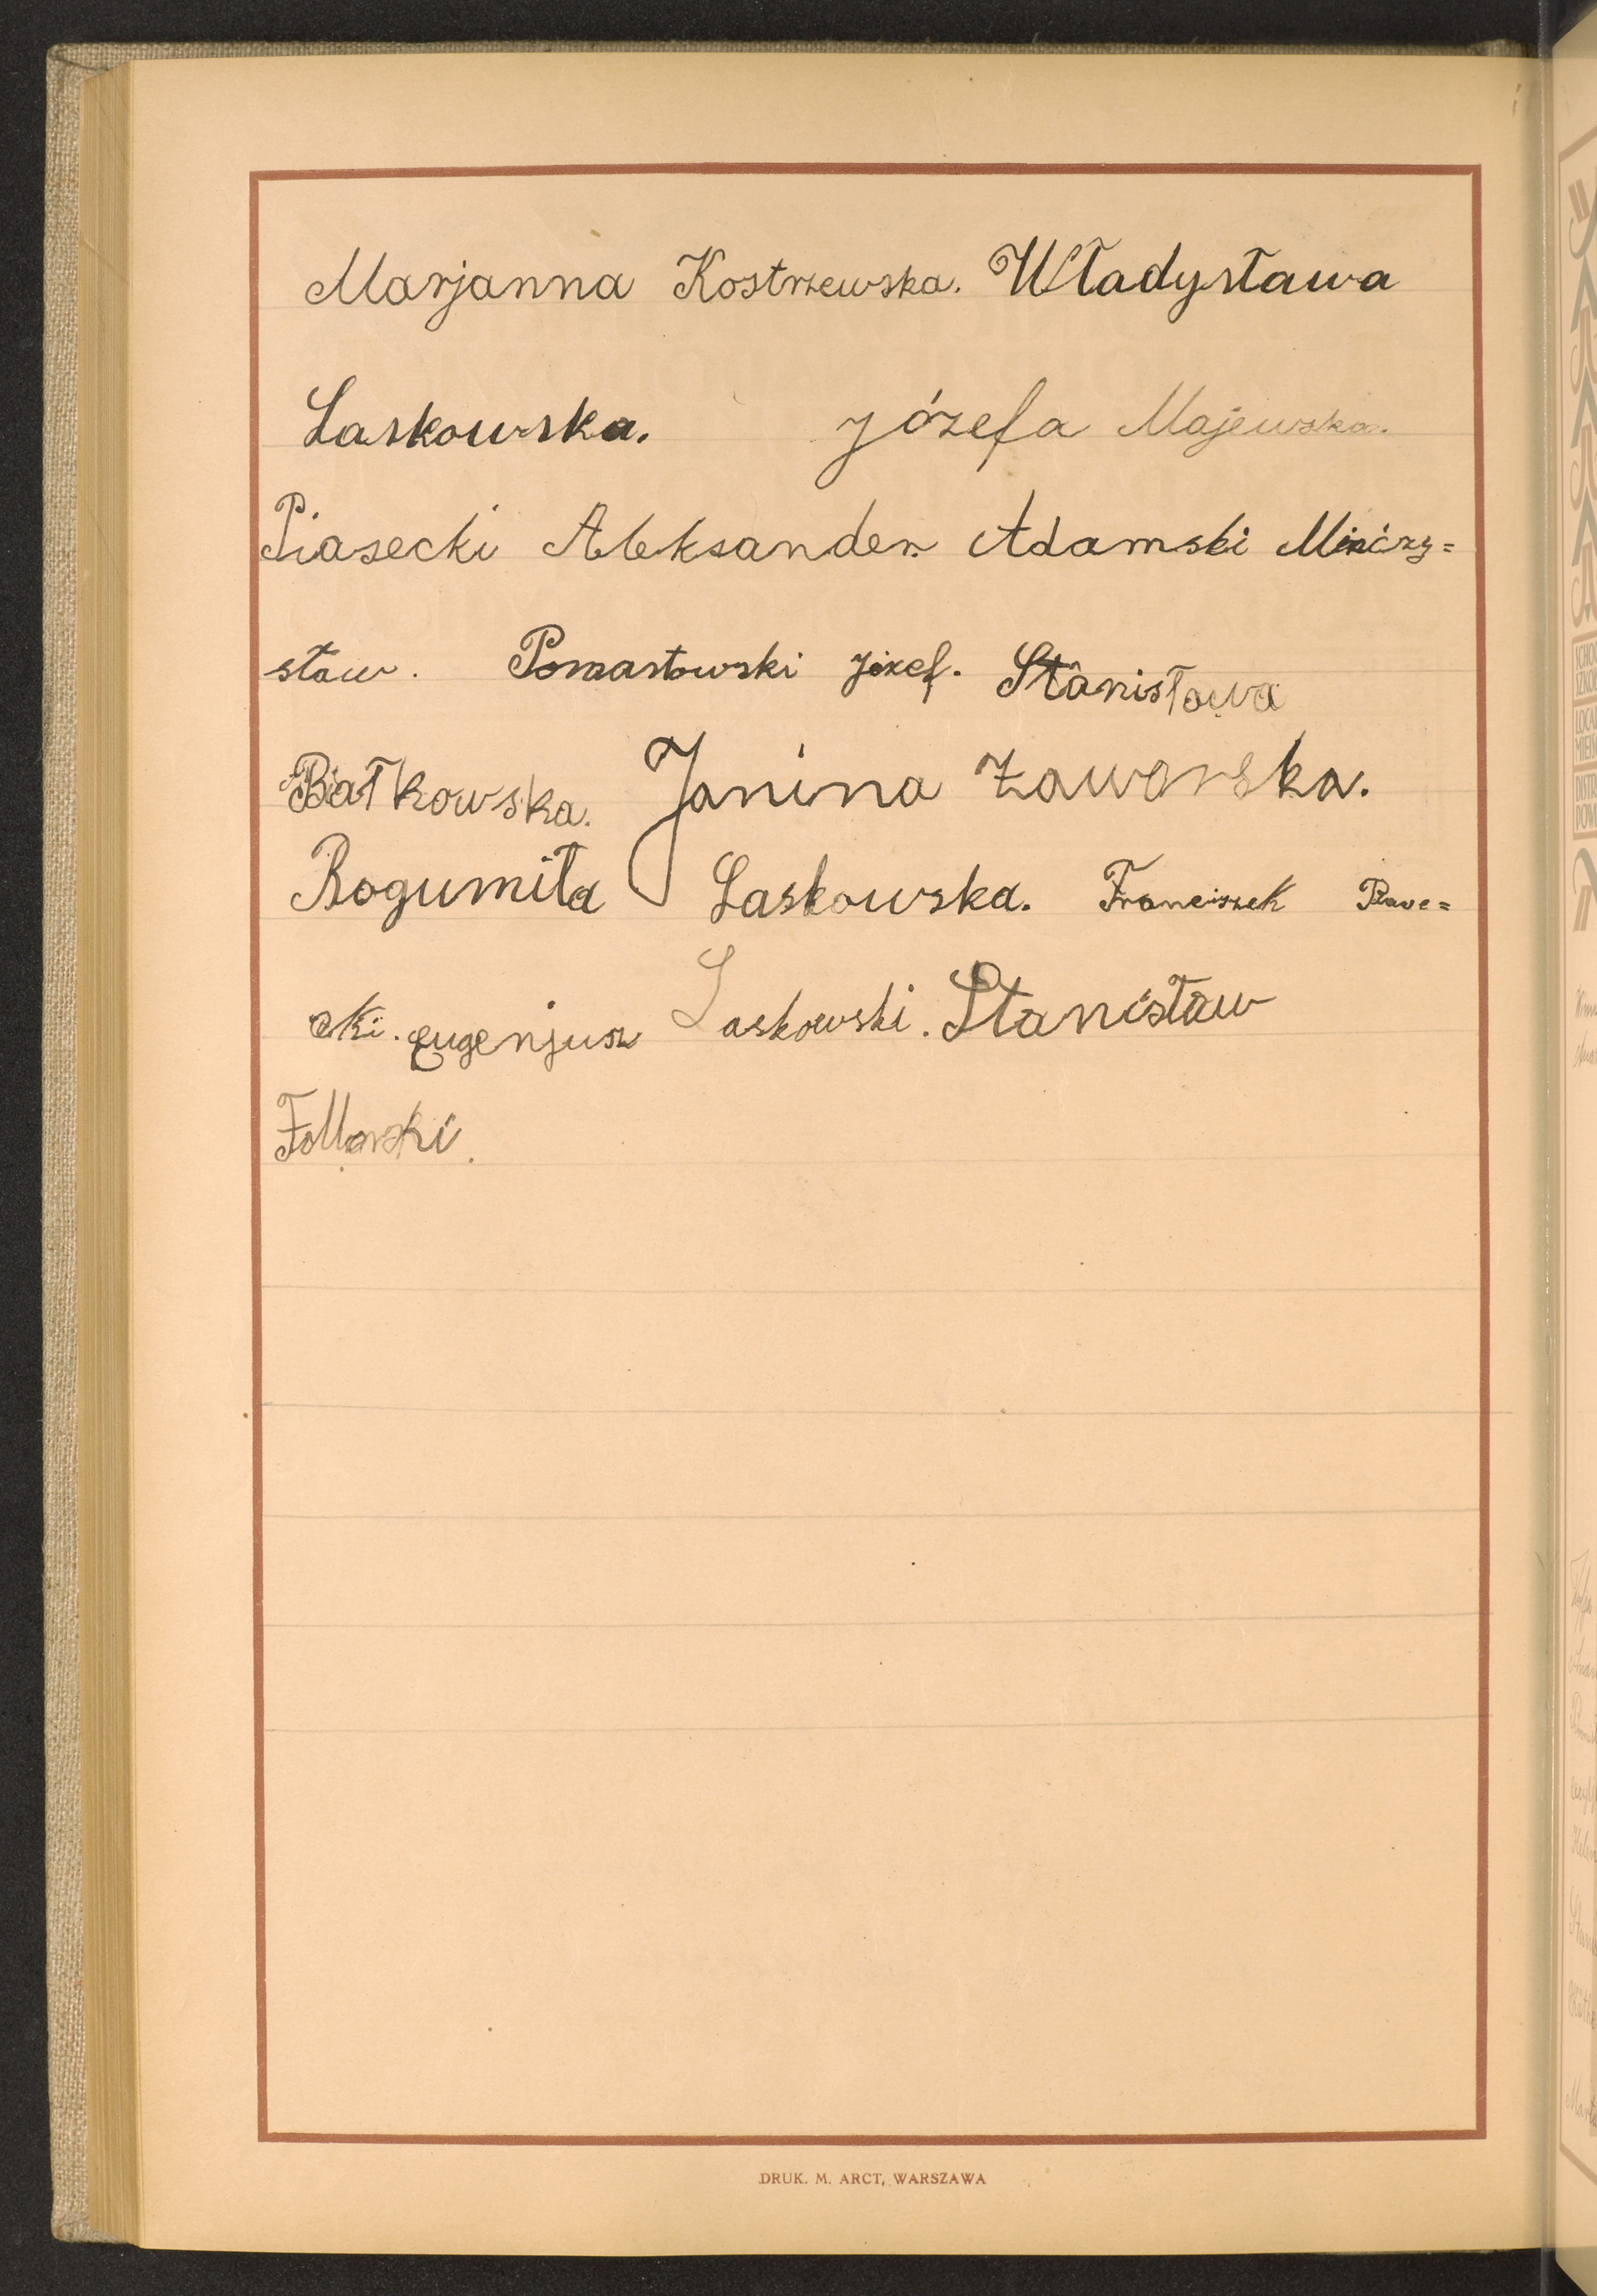 Marjanna Kostrzewska. Władysława
Laskowska. Józefa Majewska.
Piasecki Aleksander. Adamski Mieczy=
sław. Pomastowski Józef. Stanisława
Białkowska. Janina Zaworska.
Bogumiła Laskowska. Franciszek
cki. Eugenjusz Laskowski. Stanisław
DRUK. M. ARCT, WARSZAWA